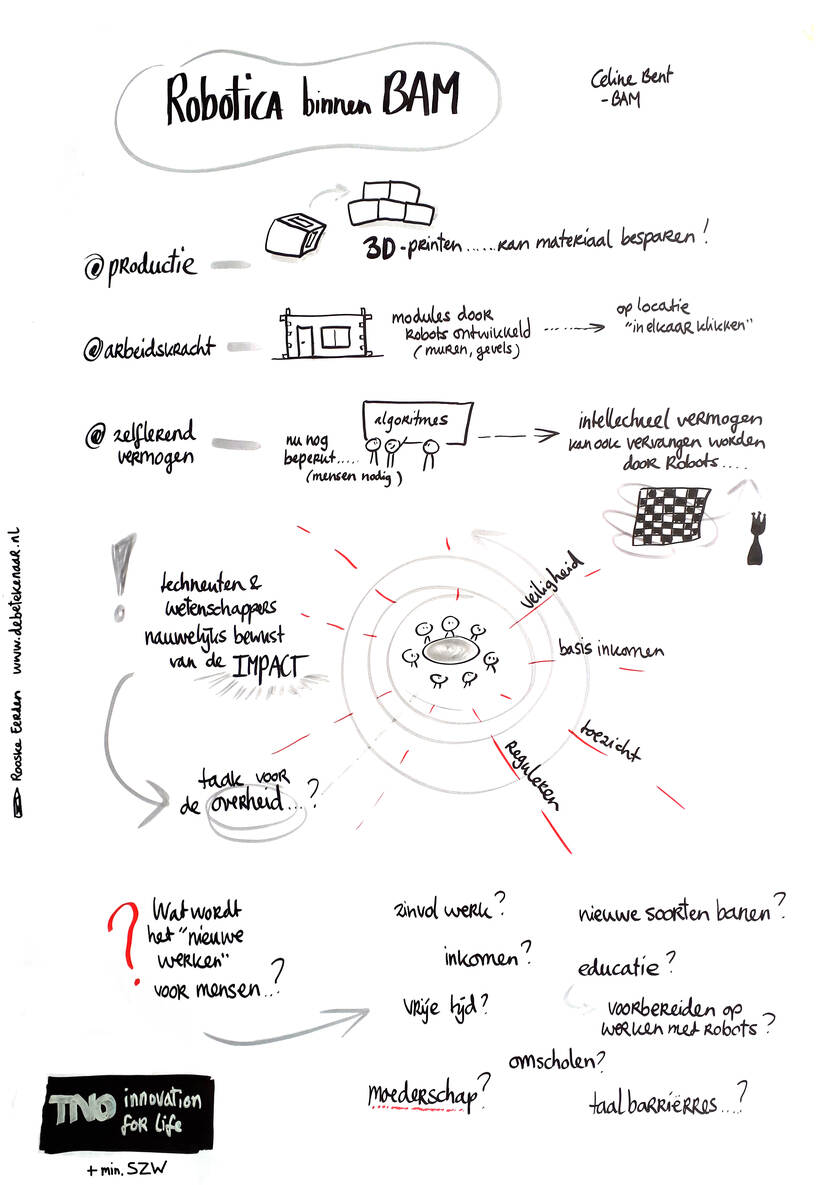 Robotica binnen BAM
Celine Bent
- BAM
@ productie
3D-printen ..... kan materiaal besparen!
@ arbeidskracht
modules door
robots ontwikkeld
(muren, gevels)
op locatie
"in elkaar klikken"
@ zelflerend
vermogen
nu nog
beperkt.....
(mensen nodig)
algoritmes
intellectueel vermogen
kan ook vervangen worden
door robots....
!
techneuten &
wetenschappers
nauwelijks bewust
van de IMPACT
veiligheid
basis inkomen
toezicht
reguleren
taak voor
de overheid...?
Rooske Eerden www.debetekenaar.nl
?
Wat wordt
het "nieuwe
werken"
voor mensen..?
zinvol werk?
inkomen?
vrije tijd?
moederschap?
nieuwe soorten banen?
educatie?
voorbereiden op
werken met robots?
omscholen?
taalbarrièrres...?
TNO innovation
for life
+ min. SZW